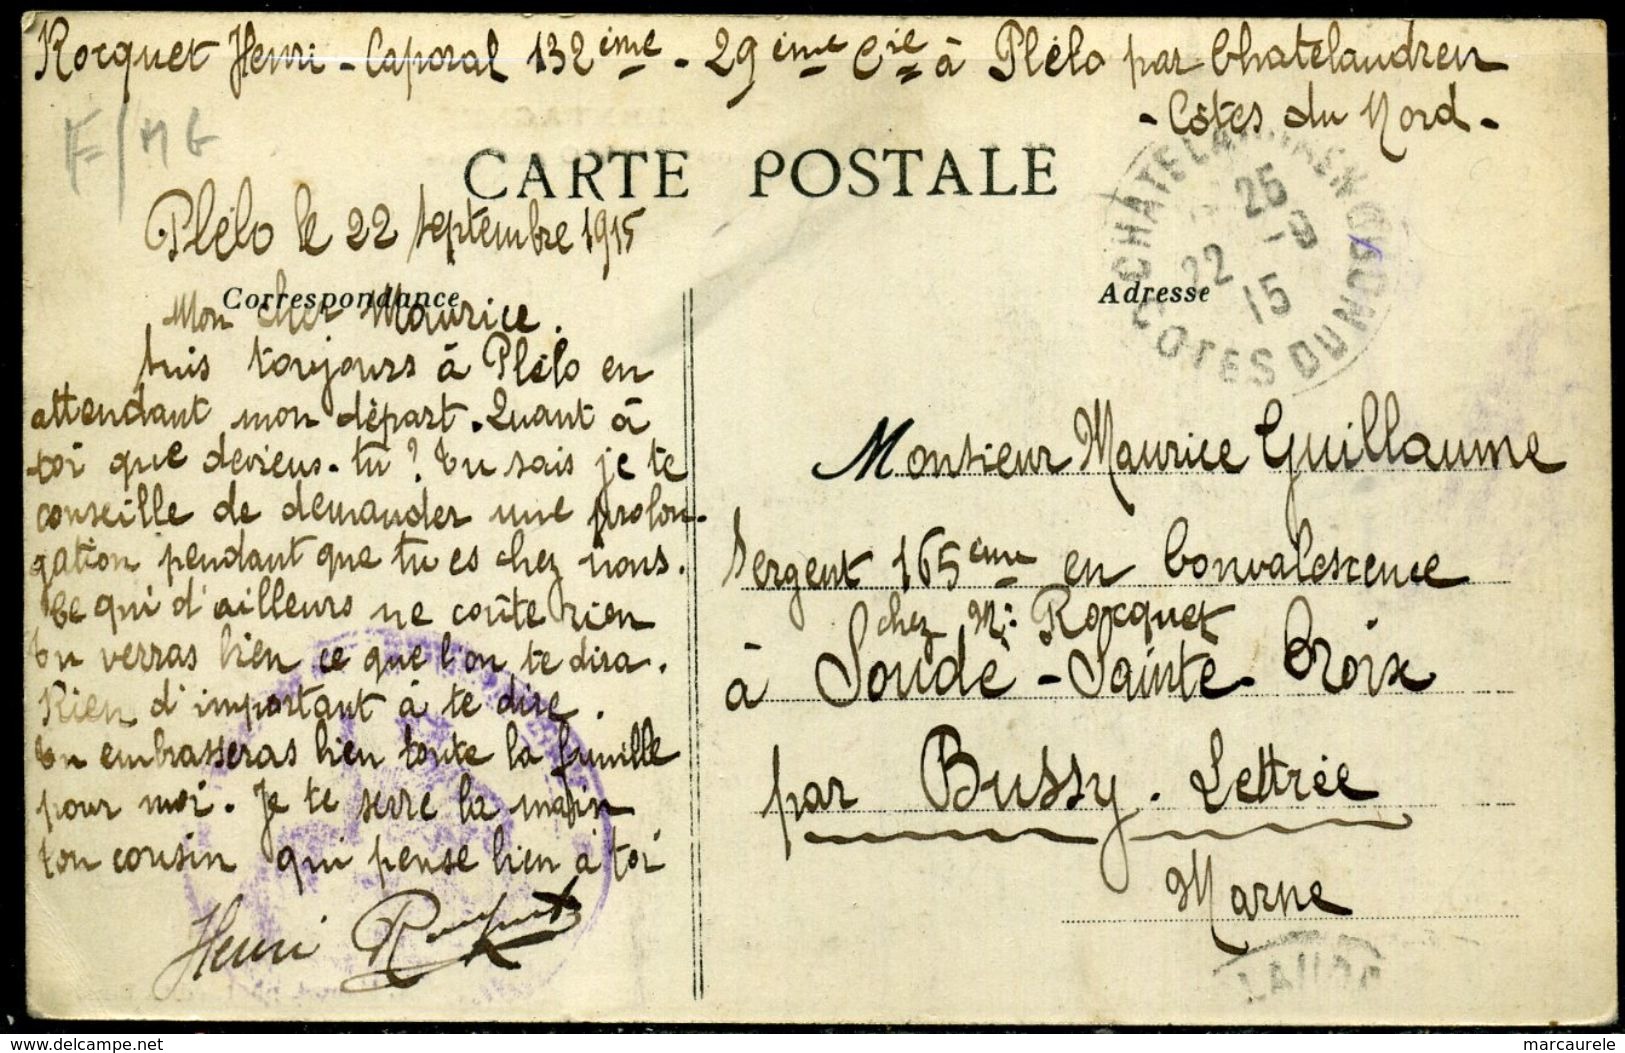 Rocquet Henri - Caporal 132ème - 29ème Cie à Plélo par Chatelaudren
- Côtes du Nord -
F/MG
CARTE POSTALE
Plélo le 22 septembre 1915
Correspondance
Adresse
CHATELAUDREN
25 -9
22 15
COTES DU NORD
Mon cher Maurice.
Suis toujours à Plélo en
attendant mon départ. Quant à
toi que deviens-tu ? Tu sais je te
conseille de demander une prolon-
gation pendant que tu es chez nous.
Ce qui d'ailleurs ne coûte rien
Tu verras bien ce que l'on te dira.
Rien d'important à te dire.
Tu embrasseras bien toute la famille
pour moi. Je te serre la main
ton cousin qui pense bien à toi
Henri Rocquet
Monsieur Maurice Guillaume
Sergent 165eme en Convalescence
chez Mr Rocquet
à Soudé-Sainte-Croix
par Bussy-Lettrée
Marne
delcampe.net
marcaurele